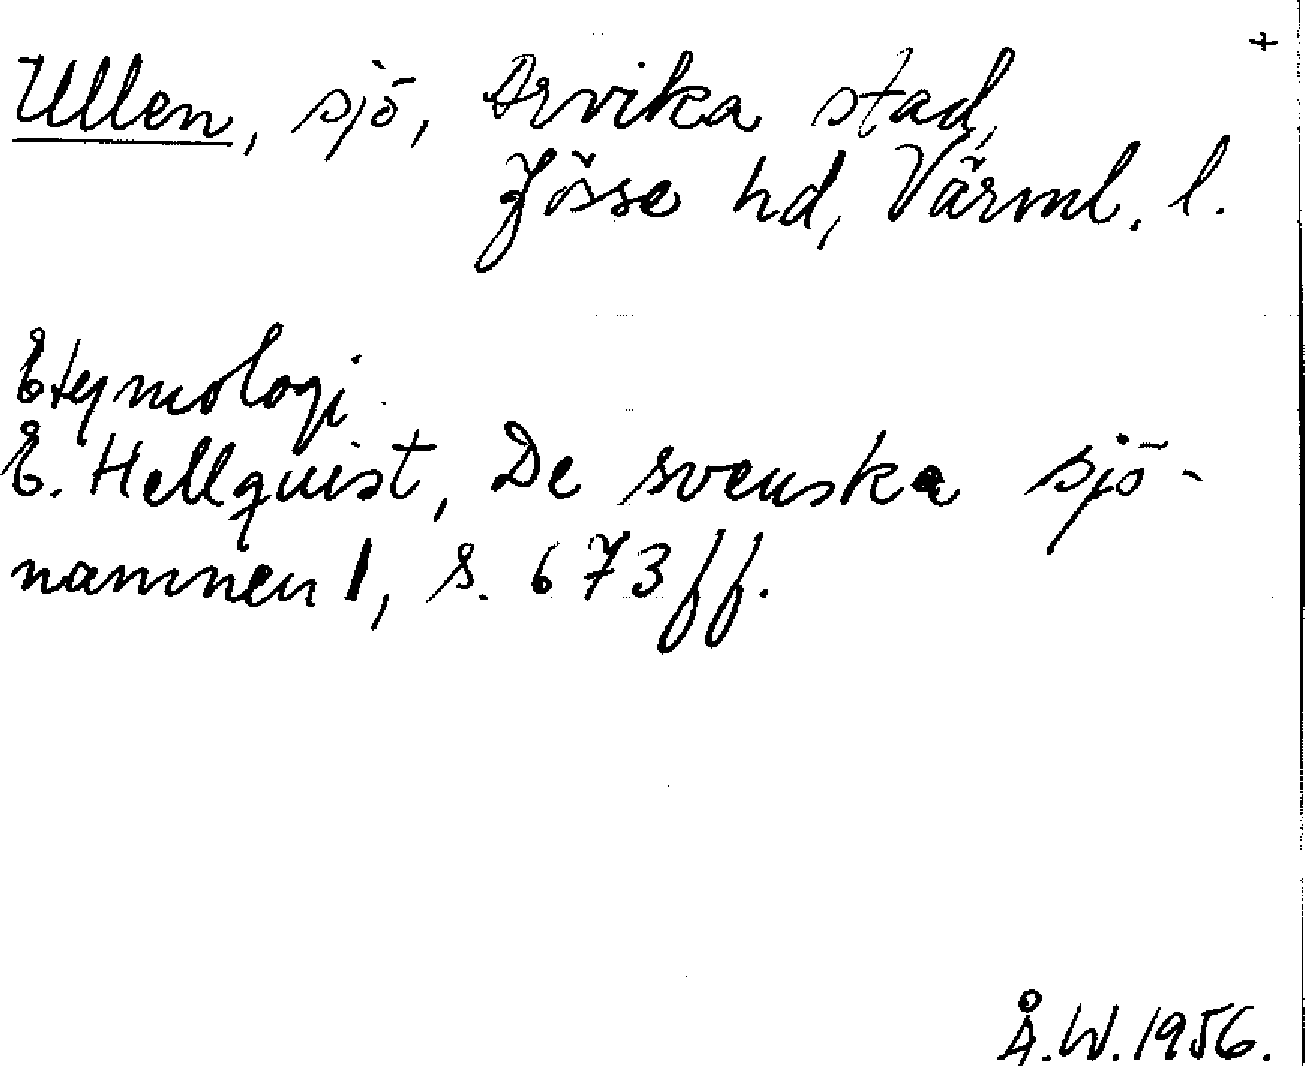 +
Ullen, sjö, Arvika stad,
Jösse hd, Värml. l.
Etymologi.
E. Hellquist, De svenska sjö-
namnen 1, s. 673 ff.
Å.W. 1956.